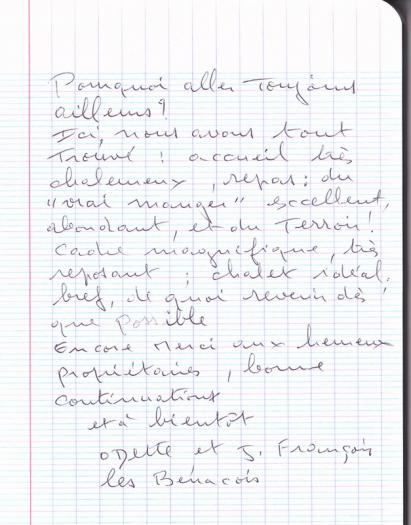 Pourquoi aller Toujours
ailleurs?
Ici, nous avons tout
Trouvé : accueil très
chaleureux, repas : du
"vrai manger" excellent,
abondant, et du Terroir!
Cadre magnifique, très
reposant ; chalet idéal.
bref, de quoi revenir dès
que possible
Encore Merci aux heureux
propriétaires, bonne
continuations
et à bientôt
ODette et J. François
les Bénacois